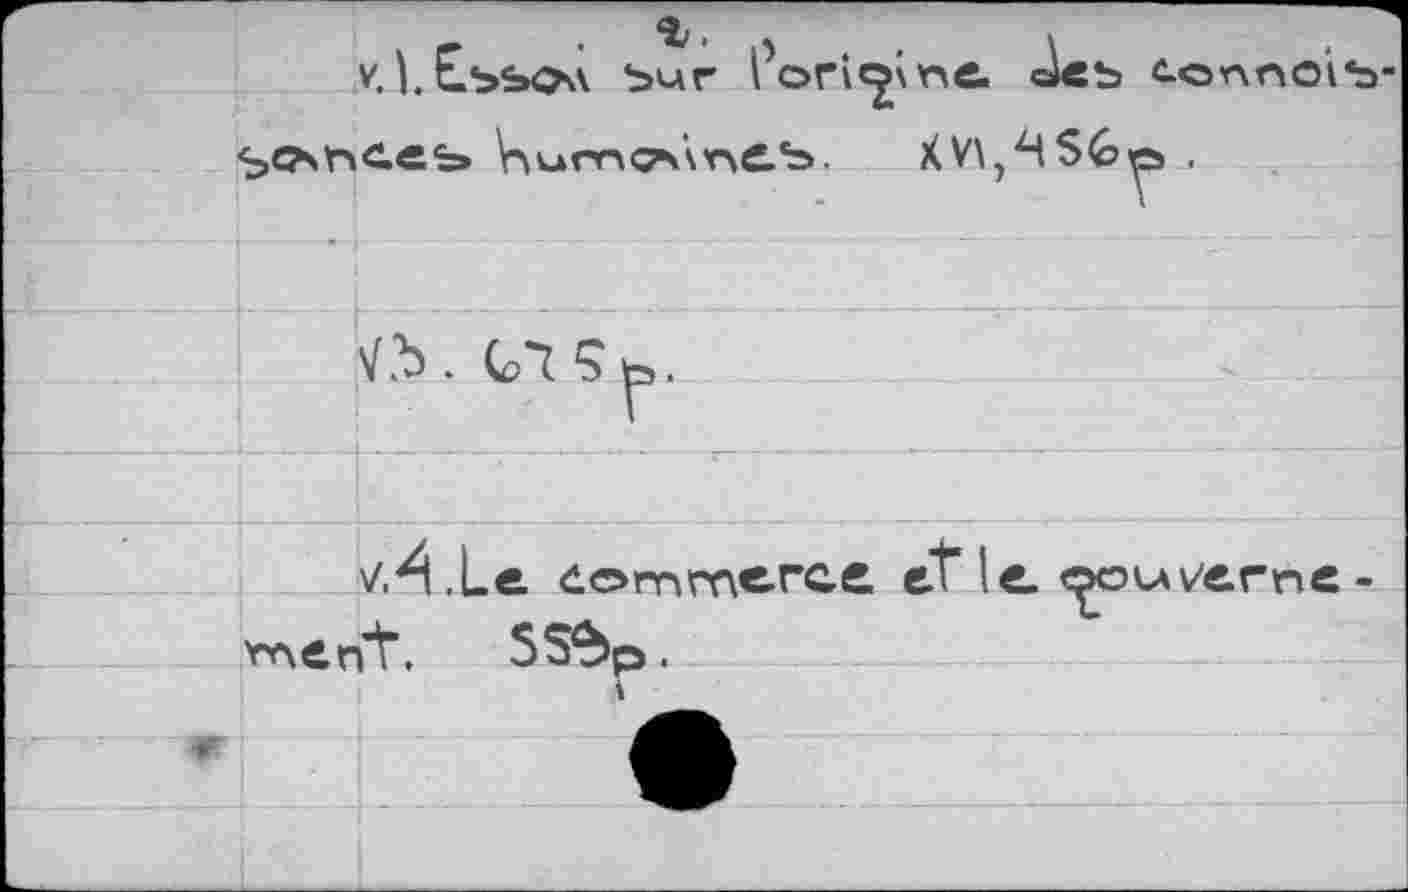 2.
v.1. Essai sur l'origine des connois-
sances humaines. XVI, 456p.
v.3. 675p.
v.4. Le commerce et le gouverne-
ment. 559p.